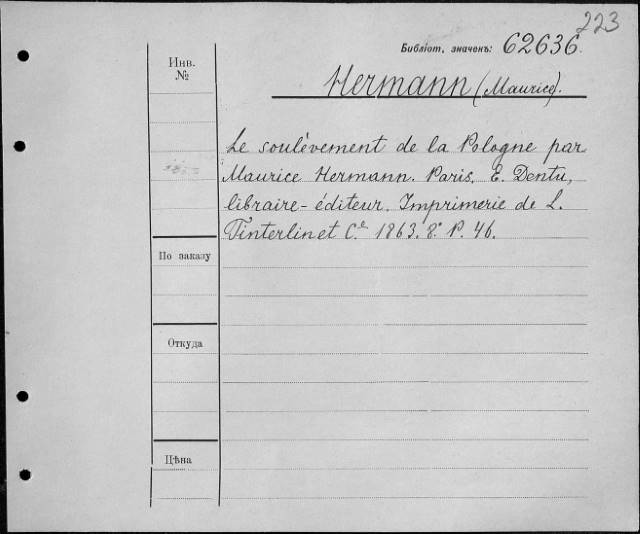 223
Библіот. значекъ: 62636.
Инв.
№
Hermann (Maurice).
Le soulèvement de la Pologne par
Maurice Hermann. Paris. E. Dentu,
libraire-éditeur. Imprimerie de L.
Tinterlin et Cᵉ 1863. 8.° P. 46.
По заказу
Откуда
Цѣна